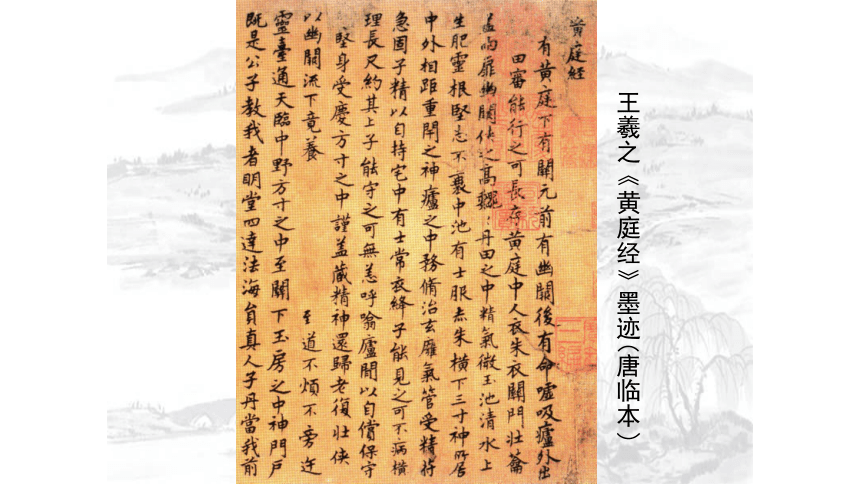 王羲之《黄庭经》墨迹(唐临本)
黄庭経
有黄庭下有關元前有幽關後有命噓吸廬外出
田審能行之可長存黄庭中人衣朱衣關門壯蘥
盖兩扉幽關俠之高魏〻丹田之中精氣微玉池清水上
生肥靈根堅志不衰中池有士服赤朱橫下三寸神所居
中外相距重閇之神廬之中務脩治玄膺氣管受精符
急固子精以自持宅中有士常衣絳子能見之可不病橫
理長尺約其上子能守之可無恙呼噏廬間以自償保守
堅身受慶方寸之中謹盖藏精神還歸老復壯俠
以幽關流下竟養 至道不煩不旁迕
靈臺通天臨中野方寸之中至關下玉房之中神門戶
既是公子教我者明堂四達法海員真人子丹當我前